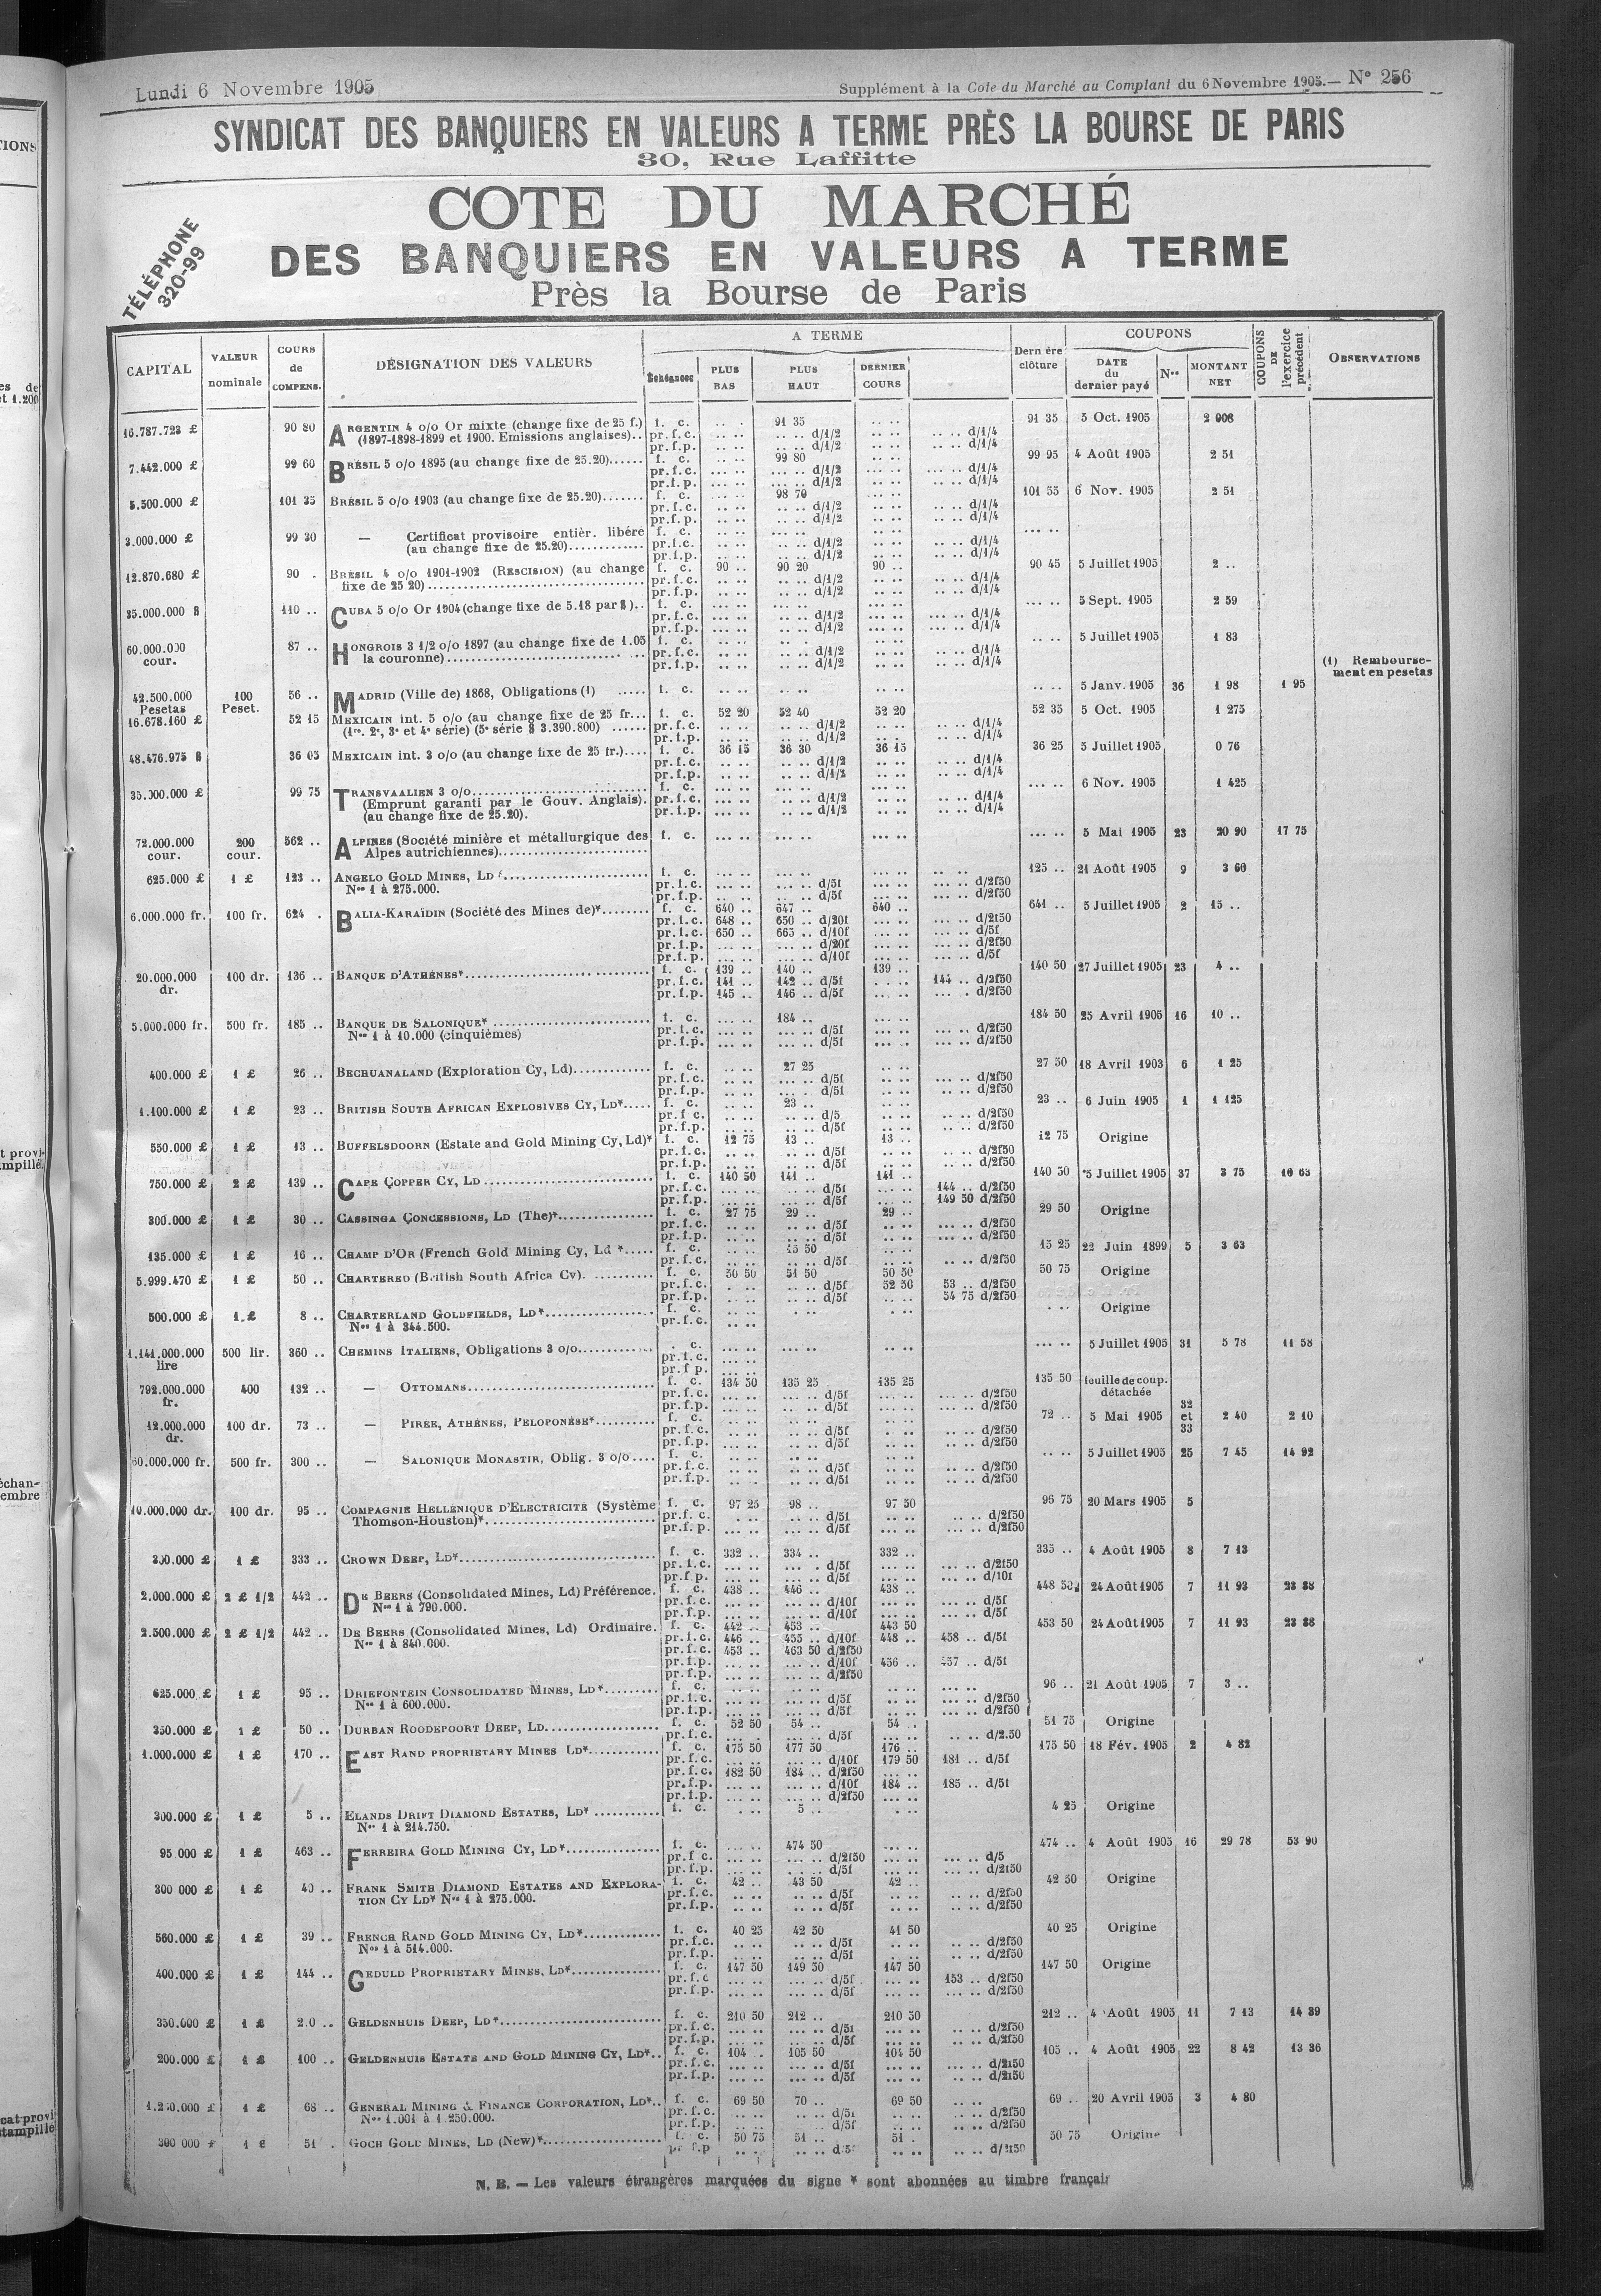 Lundi 6 Novembre 1905
Supplément à la Cote du Marché au Comptant du 6 Novembre 1905.— N° 256
SYNDICAT DES BANQUIERS EN VALEURS A TERME PRÈS LA BOURSE DE PARIS
30, Rue Laffitte
COTE DU MARCHÉ
DES BANQUIERS EN VALEURS A TERME
Près la Bourse de Paris
TÉLÉPHONE
320-99
CAPITAL VALEUR nominale COURS de COMPENS. DÉSIGNATION DES VALEURS A TERME Échéances PLUS BAS PLUS HAUT DERNIER COURS Dernière clôture COUPONS DATE du dernier payé Nos MONTANT NET COUPONS DE l'exercice précédent OBSERVATIONS
16.787.723 £ 90 80 ARGENTIN 4 o/o Or mixte (change fixe de 25 f.) f. c. .. . 91 35 .. .. 91 35 5 Oct. 1905 2 006
(1897-1898-1899 et 1900. Emissions anglaises).. pr.f.c. .. .. .. .. d/1/2 .. .. d/1/4
pr.f.p. .. .. .. .. d/1/2 .. .. d/1/4
7.442.000 £ 99 60 BRÉSIL 5 o/o 1895 (au change fixe de 25.20)...... f. c. 99 80 99 95 4 Août 1905 2 51
pr.f.c. d/1/2 d/1/4
pr.f.p. d/1/2 d/1/4
5.500.000 £ 101 35 BRÉSIL 5 o/o 1903 (au change fixe de 25.20)....... f. c. 98 70 101 55 6 Nov. 1905 2 51
pr.f.c. d/1/2 d/1/4
pr.f.p. d/1/2 d/1/4
3.000.000 £ 99 30 — Certificat provisoire entièr. libéré f. c.
(au change fixe de 25.20)............. pr.f.c. d/1/2 d/1/4
pr.f.p. d/1/2 d/1/4
12.870.680 £ 90 . BRÉSIL 4 o/o 1901-1902 (RESCISION) (au change f. c. 90 .. 90 20 90 .. 90 45 5 Juillet 1905 2 ..
fixe de 25 20)........ pr.f.c. d/1/2 d/1/4
pr.f.p. d/1/2 d/1/4
35.000.000 $ 110 .. CUBA 5 o/o Or 1904 (change fixe de 5.18 par $).. f. c. 5 Sept. 1905 2 59
pr.f.c. d/1/2 d/1/4
pr.f.p. d/1/2 d/1/4
60.000.000 cour. 87 .. HONGROIS 3 1/2 o/o 1897 (au change fixe de 1.05 f. c. 5 Juillet 1905 1 83
la couronne)........ pr.f.c. d/1/2 d/1/4
pr.f.p. d/1/2 d/1/4
(1) Remboursement en pesetas
42.500.000 Pesetas 100 Peset. 56 .. MADRID (Ville de) 1868, Obligations (1) ..... f. c. 5 Janv. 1905 36 1 98 1 95
16.678.160 £ 52 15 MEXICAIN int. 5 o/o (au change fixe de 25 fr... f. c. 52 20 52 40 52 20 52 35 5 Oct. 1905 1 275
(1re. 2e, 3e et 4e série) (5e série $ 3.390.800) ...... pr.f.c. d/1/2 d/1/4
pr.f.p. d/1/2 d/1/4
48.476.975 $ 36 05 MEXICAIN int. 3 o/o (au change fixe de 25 fr.).... f. c. 36 15 36 30 36 15 36 25 5 Juillet 1905 0 76
pr.f.c. d/1/2 d/1/4
pr.f.p. d/1/2 d/1/4
35.000.000 £ 99 75 TRANSVAALIEN 3 o/o........ f. c. 6 Nov. 1905 1 425
(Emprunt garanti par le Gouv. Anglais). pr.f.c. d/1/2 d/1/4
(au change fixe de 25.20). pr.f.p. d/1/2 d/1/4
72.000.000 cour. 200 cour. 562 .. ALPINES (Société minière et métallurgique des f. c. 5 Mai 1905 23 20 90 17 75
Alpes autrichiennes)........
625.000 £ 1 £ 123 .. ANGELO GOLD MINES, LD ........ f. c. 125 .. 21 Août 1905 9 3 60
Nos 1 à 275.000. pr.f.c. d/5f d/2f50
pr.f.p. d/5f d/2f50
6.000.000 fr. 100 fr. 624 . BALIA-KARAÏDIN (Société des Mines de)*........ f. c. 640 .. 647 .. 640 .. 641 .. 5 Juillet 1905 2 15 ..
pr.f.c. 648 .. 650 .. d/20f d/2f50
pr.f.c. 650 .. 665 .. d/10f d/5f
pr.f.p. d/20f d/2f50
pr.f.p. d/10f d/5f
20.000.000 dr. 100 dr. 136 .. BANQUE D'ATHÈNES*........ f. c. 139 .. 140 .. 139 .. 140 50 27 Juillet 1905 23 4 ..
pr.f.c. 141 .. 142 .. d/5f 144 .. d/2f50
pr.f.p. 145 .. 146 .. d/5f d/2f50
5.000.000 fr. 500 fr. 185 .. BANQUE DE SALONIQUE* ........ f. c. 184 .. 184 50 25 Avril 1905 16 10 ..
Nos 1 à 10.000 (cinquièmes) pr.f.c. d/5f d/2f50
pr.f.p. d/5f d/2f50
400.000 £ 1 £ 26 .. BECHUANALAND (Exploration Cy, Ld)........ f. c. 27 25 27 50 18 Avril 1903 6 1 25
pr.f.c. d/5f d/2f50
pr.f.p. d/5f d/2f50
1.100.000 £ 1 £ 23 .. BRITISH SOUTH AFRICAN EXPLOSIVES CY, LD*..... f. c. 23 .. 23 .. 6 Juin 1905 1 1 125
pr.f c. d/5 d/2f50
pr.f.p. d/5f d/2f50
550.000 £ 1 £ 13 .. BUFFELSDOORN (Estate and Gold Mining Cy, Ld)* f. c. 12 75 13 .. 13 .. 12 75 Origine
pr.f.c. d/5f d/2f50
pr.f.p. d/5f d/2f50
750.000 £ 2 £ 139 .. CAPE COPPER CY, LD ........ f. c. 140 50 141 .. 141 .. 140 50 5 Juillet 1905 37 3 75 10 63
pr.f.c. d/5f 144 .. d/2f50
pr.f.p. d/5f 149 50 d/2f50
300.000 £ 1 £ 30 .. CASSINGA CONCESSIONS, LD (The)*........ f. c. 27 75 29 .. 29 .. 29 50 Origine
pr.f.c. d/5f d/2f50
pr.f.p. d/5f d/2f50
135.000 £ 1 £ 16 .. CHAMP D'OR (French Gold Mining Cy, Ld *..... f. c. 15 50 15 25 22 Juin 1899 5 3 63
pr.f.c. d/5f d/2f50
5.999.470 £ 1 £ 50 .. CHARTERED (British South Africa Cy). .......... f. c. 50 50 51 50 50 50 50 75 Origine
pr.f.c. d/5f 52 50 53 .. d/2f50
pr.f.p. d/5f 54 75 d/2f50
500.000 £ 1 £ 8 .. CHARTERLAND GOLDFIELDS, LD*........ f. c. Origine
Nos 1 à 344.500. pr.f.c.
1.141.000.000 lire 500 lir. 360 .. CHEMINS ITALIENS, Obligations 3 o/o........ . c. 5 Juillet 1905 31 5 78 11 58
pr.f.c.
pr.f p.
792.000.000 fr. 400 132 .. — OTTOMANS........ f. c. 134 50 135 25 135 25 135 50 feuille de coup. détachée
pr.f.c. d/5f d/2f50
pr.f.p. d/5f d/2f50
12.000.000 dr. 100 dr. 73 .. — PIREE, ATHÈNES, PELOPONÈSE*.......... f. c. 72 .. 5 Mai 1905 32 et 33 2 40 2 10
pr.f.c. d/5f d/2f50
pr.f.p. d/5f d/2f50
60.000.000 fr. 500 fr. 300 .. — SALONIQUE MONASTIR, Oblig. 3 o/o.... f. c. 5 Juillet 1905 25 7 45 14 92
pr.f.c. d/5f d/2f50
pr.f.p. d/5f d/2f50
10.000.000 dr. 100 dr. 95 .. COMPAGNIE HELLÉNIQUE D'ELECTRICITÉ (Système f. c. 97 25 98 .. 97 50 96 75 20 Mars 1905 5
Thomson-Houston)*........ pr.f. c. d/5f d/2f50
pr.f. p. d/5f d/2f50
300.000 £ 1 £ 333 .. CROWN DEEP, LD*........ f. c. 332 .. 334 .. 332 .. 335 .. 4 Août 1905 8 7 13
pr.f.c. d/5f d/2f50
pr.f.p. d/5f d/10f
2.000.000 £ 2 £ 1/2 442 .. DE BEERS (Consolidated Mines, Ld) Préférence. f. c. 438 .. 446 .. 438 .. 448 50 24 Août 1905 7 11 93 23 88
Nos 1 à 790.000. pr.f.c. d/10f d/5f
pr.f.p. d/10f d/5f
2.500.000 £ 2 £ 1/2 442 .. DE BEERS (Consolidated Mines, Ld) Ordinaire. f. c. 442 .. 453 .. 443 50 453 50 24 Août 1905 7 11 93 23 88
Nos 1 à 840.000. pr.f.c. 446 .. 455 .. d/10f 448 .. 458 .. d/5f
pr.f.c. 453 .. 463 50 d/2f50
pr.f.p. d/10f 456 .. 457 .. d/5f
pr.f.p. d/2f50
625.000 £ 1 £ 95 .. DRIEFONTEIN CONSOLIDATED MINES, LD*......... f. c. 96 .. 21 Août 1905 7 3 ..
Nos 1 à 600.000. pr.f.c. d/5f d/2f50
pr.f.p. d/5f d/2f50
350.000 £ 1 £ 50 .. DURBAN ROODEPOORT DEEP, LD........ f. c. 52 50 54 .. 54 .. 51 75 Origine
pr.f.c. d/5f d/2.50
1.000.000 £ 1 £ 170 .. EAST RAND PROPRIETARY MINES LD*............ f. c. 175 50 177 50 176 .. 175 50 18 Fév. 1905 2 4 82
pr.f.c. d/10f 179 50 181 .. d/5f
pr.f.c. 182 50 184 .. d/2f50
pr.f.p. d/10f 184 .. 185 .. d/5f
pr.f.p. d/2f50
300.000 £ 1 £ 5 .. ELANDS DRIFT DIAMOND ESTATES, LD* ........... f. c. 5 .. 4 25 Origine
Nos 1 à 214.750.
95.000 £ 1 £ 463 .. FERREIRA GOLD MINING CY, LD*........ f. c. 474 50 474 .. 4 Août 1905 16 29 78 53 90
pr.f c. d/2f50 d/5
pr.f.p. d/5f d/2f50
300 000 £ 1 £ 40 .. FRANK SMITH DIAMOND ESTATES AND EXPLORA- f. c. 42 .. 43 50 42 .. 42 50 Origine
TION CY LD* Nos 1 à 275.000. pr.f.c. d/5f d/2f50
pr.f.p. d/5f d/2f50
560.000 £ 1 £ 39 .. FRENCH RAND GOLD MINING CY, LD*............ f. c. 40 25 42 50 41 50 40 25 Origine
Nos 1 à 514.000. pr.f.c. d/5f d/2f50
pr.f.p. d/5f d/2f50
400.000 £ 1 £ 144 .. GEDULD PROPRIETARY MINES, LD*........ f. c. 147 50 149 50 147 50 147 50 Origine
pr.f.c d/5f 153 .. d/2f50
pr.f.p. d/5f d/2f50
350.000 £ 1 £ 2.0 .. GELDENHUIS DEEP, LD*........ f. c. 210 50 212 .. 210 50 212 .. 4 Août 1905 11 7 13 14 39
pr.f.c. d/5f d/2f50
pr.f.p. d/5f d/2f50
200.000 £ 1 £ 100 .. GELDENHUIS ESTATE AND GOLD MINING CY, LD*.. f. c. 104 .. 105 50 104 50 105 .. 4 Août 1905 22 8 42 13 36
pr.f.c. d/5f d/2f50
pr.f.p. d/5f d/2f50
1.250.000 £ 1 £ 68 .. GENERAL MINING & FINANCE CORPORATION, LD*.. f. c. 69 50 70 .. 69 50 69 .. 20 Avril 1905 3 4 80
Nos 1.001 à 1.250.000. pr.f.c. d/5f d/2f50
pr.f.p. d/5f d/2f50
300 000 £ 1 £ 51 . GOCH GOLD MINES, LD (New)*........ f. c. 50 75 51 .. 51 . 50 75 Origine
pr f.p d 5f d/2f50
N. B. — Les valeurs étrangères marquées du signe * sont abonnées au timbre français